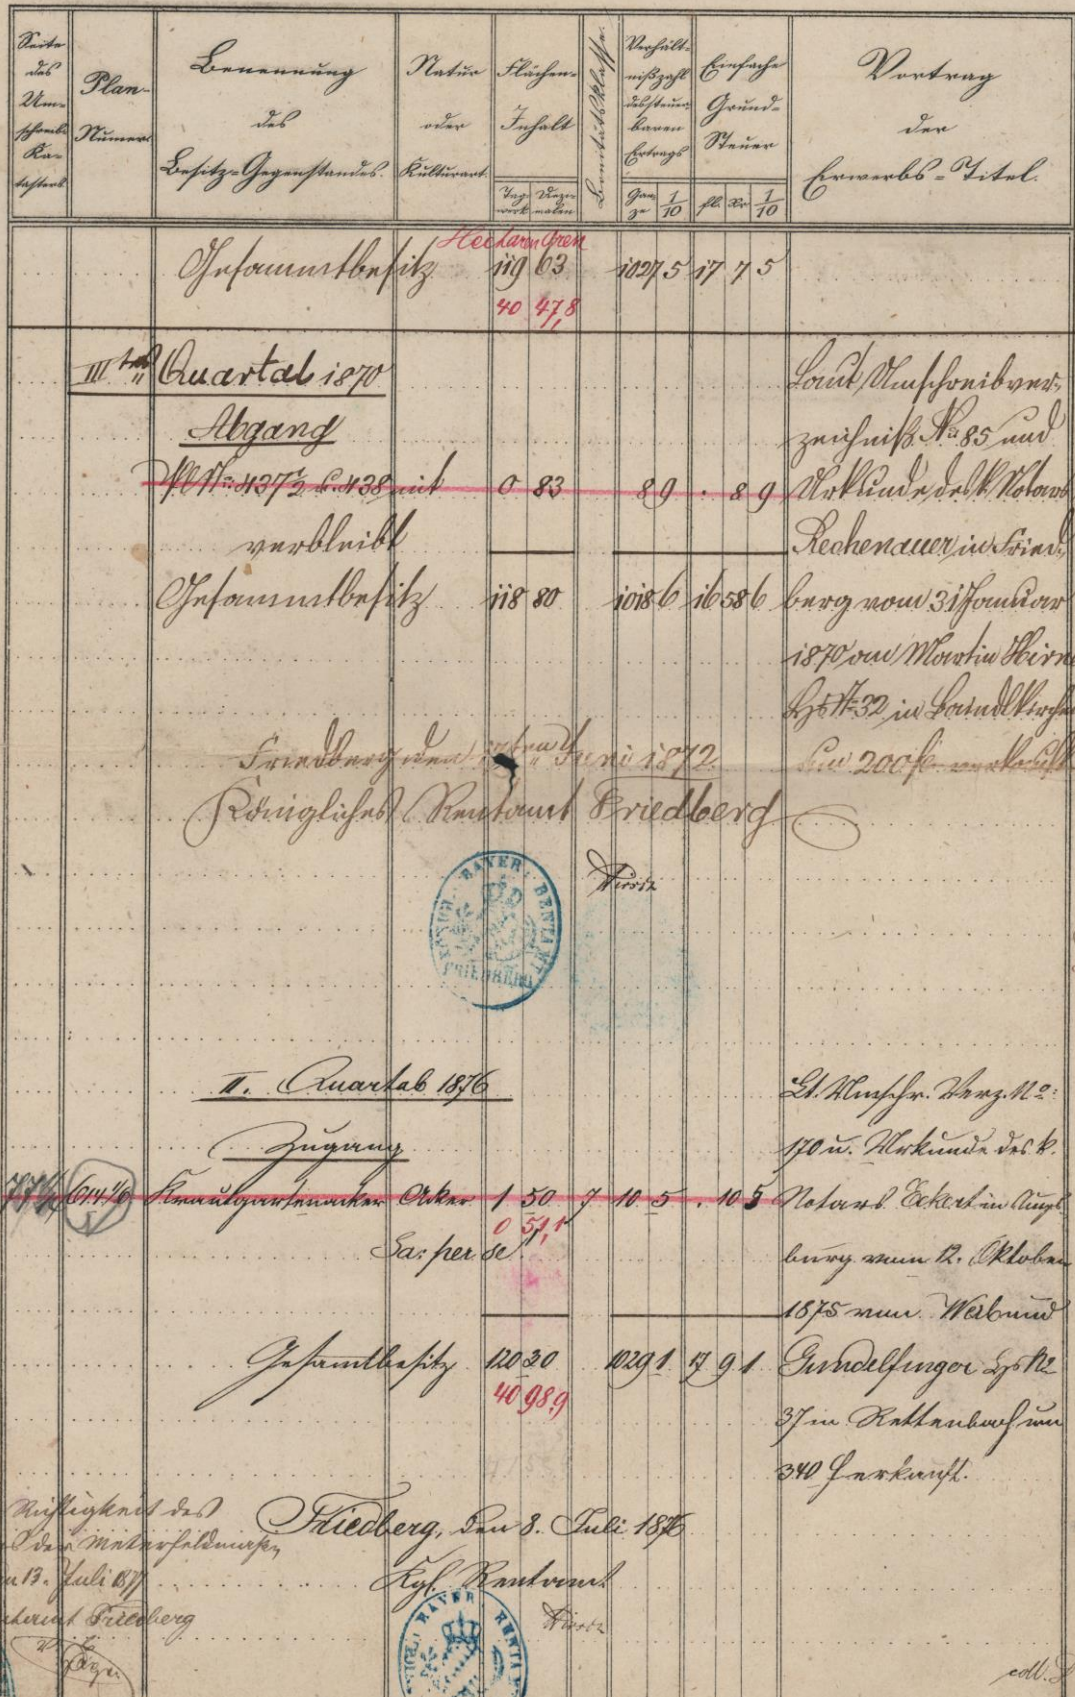 Seite
des
Um-
schreib-
Ka-
tasters
Plan-
Numer
Benennung
des
Besitz-Gegenstandes.
Natur
oder
Kulturart.
Flächen-
Inhalt
Tag-
werk
Dezi-
malen
Bonitätsklasse.
Verhält-
nißzahl
des steuer-
baren
Ertrags
Gan-
ze
1/10
Einfache
Grund-
Steuer
fl. Kr. 1/10
Vortrag
der
Erwerbs-Titel.
Hectaren Aren
Gesammtbesitz 119 63 1027 5 17 7 5
40 47,8
III tes Quartal 1870
Abgang
Pl. N°: 437½ u. 438 mit 0 83 8 9 . 8 9
verbleibt
Gesammtbesitz 118 80 1018 6 16 58 6
Laut Umschreibver-
zeichniß N°: 85 und
Urkunde des k. Notars
Rechenauer in Fried-
berg vom 31 Januar
1870 an Martin
Hs N° 32 in Baindlkirch
um 200 fl. verkauft
Friedberg den Juni 1872.
Königliches Rentamt Friedberg
KÖNIGL. BAYER. RENTAMT
FRIEDBERG
II. Quartal 1876
Zugang
614 1/6 Krautgartenacker Acker 1 50 7 10 5 . 10 5
0 51,1
Sa: per se
Gesamtbesitz 120 30 1029 1 17 9 1
40 98,9
Lt. Umschr. Verz. N°:
170 u. Urkunde des k.
Notars Eckert in Augs-
burg vom 12. Oktober
1875 von
Gundelfinger Hs N°
37 in Rettenbach um
340 fl erkauft.
Friedberg, den 8. Juli 1876
Kgl. Rentamt
Richtigkeit des
13. Juli 1877
Friedberg
KÖNIGL. BAYER. RENTA
coll.